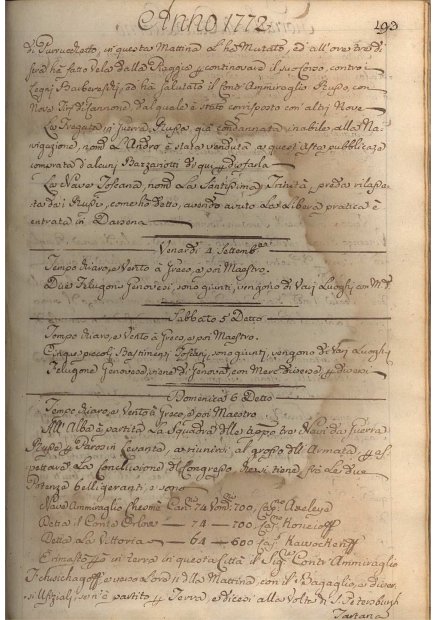 Anno 1772
193
di Parrucchetto, in questa Mattina l'ha Mutato, ed all'ore tre di
sera hà fatto Vela dalla Piaggia continovare il suo Corso, contro i
Legni Barbereschi, ed hà salutato il Contr'Ammiraglio Russo, con
Nove Tiri di Cannone, dal quale è stato corrisposto con altri Nove
La Fregata in guerra Russa già condannata inabile alla Na-
vigazione, nomᵗᵃ S. Andrò è stata venduta a quest'asta pubblica, e
comprata d'alcuni Bazzariotti di qui disfarla
La Nave Toscana, nomᵗᵃ La Santissima Trinità, preda rilascia-
ta dai Russi, come hò detto, avendo avuto La Libera pratica è
entrata in Darsena
Venardì 4 Settembre
Tempo chiaro, e Vento à Greco, e poi Maestro.
Due Felugoni Genovesi, sono giunti, vengono di Varj Luoghi con
Sabbato 5 Detto
Tempo chiaro, e Vento à Greco, e poi Maestro.
Cinque piccoli Bastimenti Toscani, sono giunti, vengono di Varj Luoghi
Felugone Genovese, viene di Genova, con Merci diverse
Domenica 6 Detto
Tempo chiaro, e Vento à Greco, e poi Maestro
All'Alba è partita La Squadra delle tre Navi da guerra
Russe Paros in Levante, a riunirsi al grosso dell'Armata
pettare La Conclusione del Congresso, che si tiene, frà Le due
Potenze belligeranti, e sono
Nave Ammiraglio Chesme Canⁿⁱ 74 Uomⁿⁱ 700, Capⁿᵒ
Detta il Conte Orlow — 74 — 700, Capⁿᵒ
Detta La Vittoria — 64 — 600, Capⁿᵒ
È rimasto in terra in questa Città il Sigʳᵉ Contr'Ammiraglio
e verso L'ora 11 della Mattina, con il Bagaglio, e diver-
si Uffiziali, se n'è partito Terra, e dicesi alla Volta di S. Petersburgh
Tartana